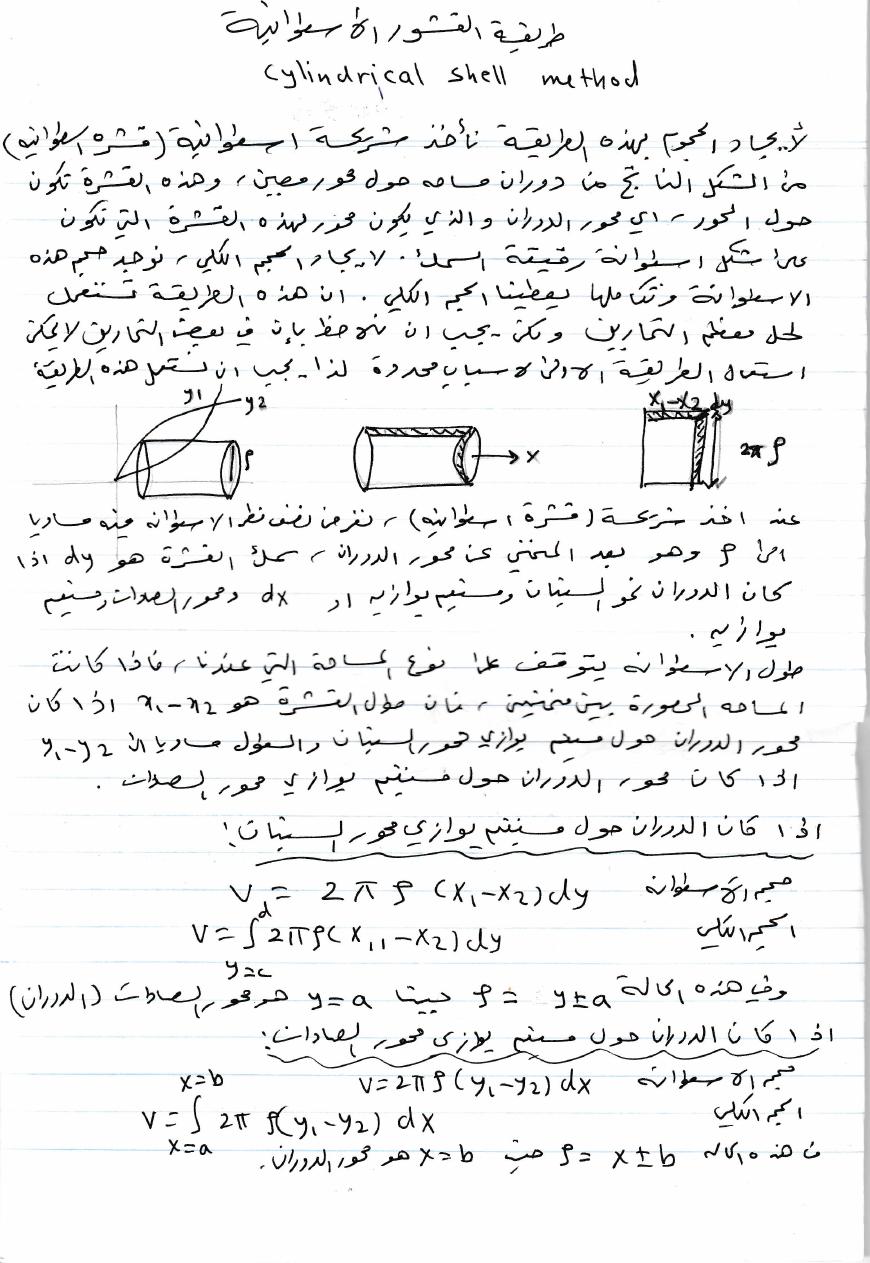 طريقة القشور الأسطوانية
cylindrical shell method
لأيجاد الحجوم بهذه الطريقة نأخذ شريحة اسطوانية (قشره اسطوانيه)
من الشكل الناتج من دوران مساحه حول محور معين، وهذه القشرة تكون
حول المحور، اي محور الدوران والذي يكون محور لهذه القشرة التي تكون
على شكل اسطوانة رقيقة السمك. لايجاد الحجم الكلي، نوجد حجم هذه
الاسطوانة وتكاملها يعطينا الحجم الكلي. ان هذه الطريقة تستعمل
لحل معظم التمارين ولكن يجب ان نلاحظ بان في بعض التمارين لايمكن
استعمال الطريقة الاولى لاسباب محدودة لذا يجب ان نستعمل هذه الطريقة
y1 y2 ρ
x
x1-x2 dy 2π ρ
عند اخذ شريحة (قشرة اسطوانيه)، نفرض نصف قطر الاسطوانه فيه مساويا
الى ρ وهو بعد المنحني عن محور الدوران، سمك القشرة هو dy اذا
كان الدوران نحو السينات ومستقيم يوازيه او dx ومحور الصادات ومستقيم
يوازيه.
طول الاسطوانه يتوقف على نوع المساحة التي عندنا، فاذا كانت
المساحه المحصورة بين منحنيين، فان طول القشرة هو x1-x2 اذا كان
محور الدوران حول مستقيم يوازي محور السينات والطول مساويا الى y1-y2
اذا كان محور الدوران حول مستقيم يوازي محور الصادات.
اذا كان الدوران حول مستقيم يوازي محور السينات:
حجم الأسطوانة V1= 2π ρ (x1-x2)dy
الحجم الكلي V=∫ d y=c 2πρ(x11-x2)dy
وفي هذه الحالة ρ = y±a حيث y=a هو محور الصادات (الدوران)
اذا كان الدوران حول مستقيم يوازي محور الصادات:
حجم الاسطوانه V=2πρ(y1-y2)dx
الحجم الكلي V=∫ x=b x=a 2π ρ(y1-y2) dx
في هذه الحاله ρ= x±b حيث x=b هو محور الدوران.